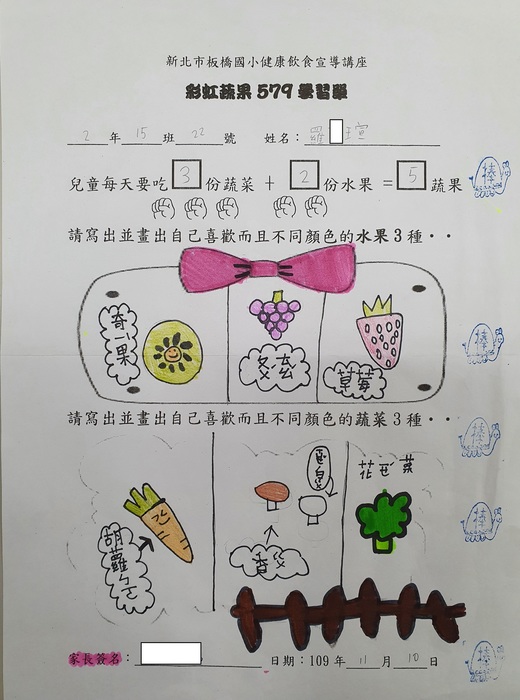 新北市板橋國小健康飲食宣導講座
彩虹蔬果579學習單
2 年 15 班 22 號 姓名: 羅 宣
兒童每天要吃 3 份蔬菜 + 2 份水果 = 5 蔬果
請寫出並畫出自己喜歡而且不同顏色的水果3種‧‧
奇一果
草莓
請寫出並畫出自己喜歡而且不同顏色的蔬菜3種‧‧
花
菜
胡蘿
香
家長簽名:
日期:109年 11 月 10 日
棒
棒
棒
棒
棒